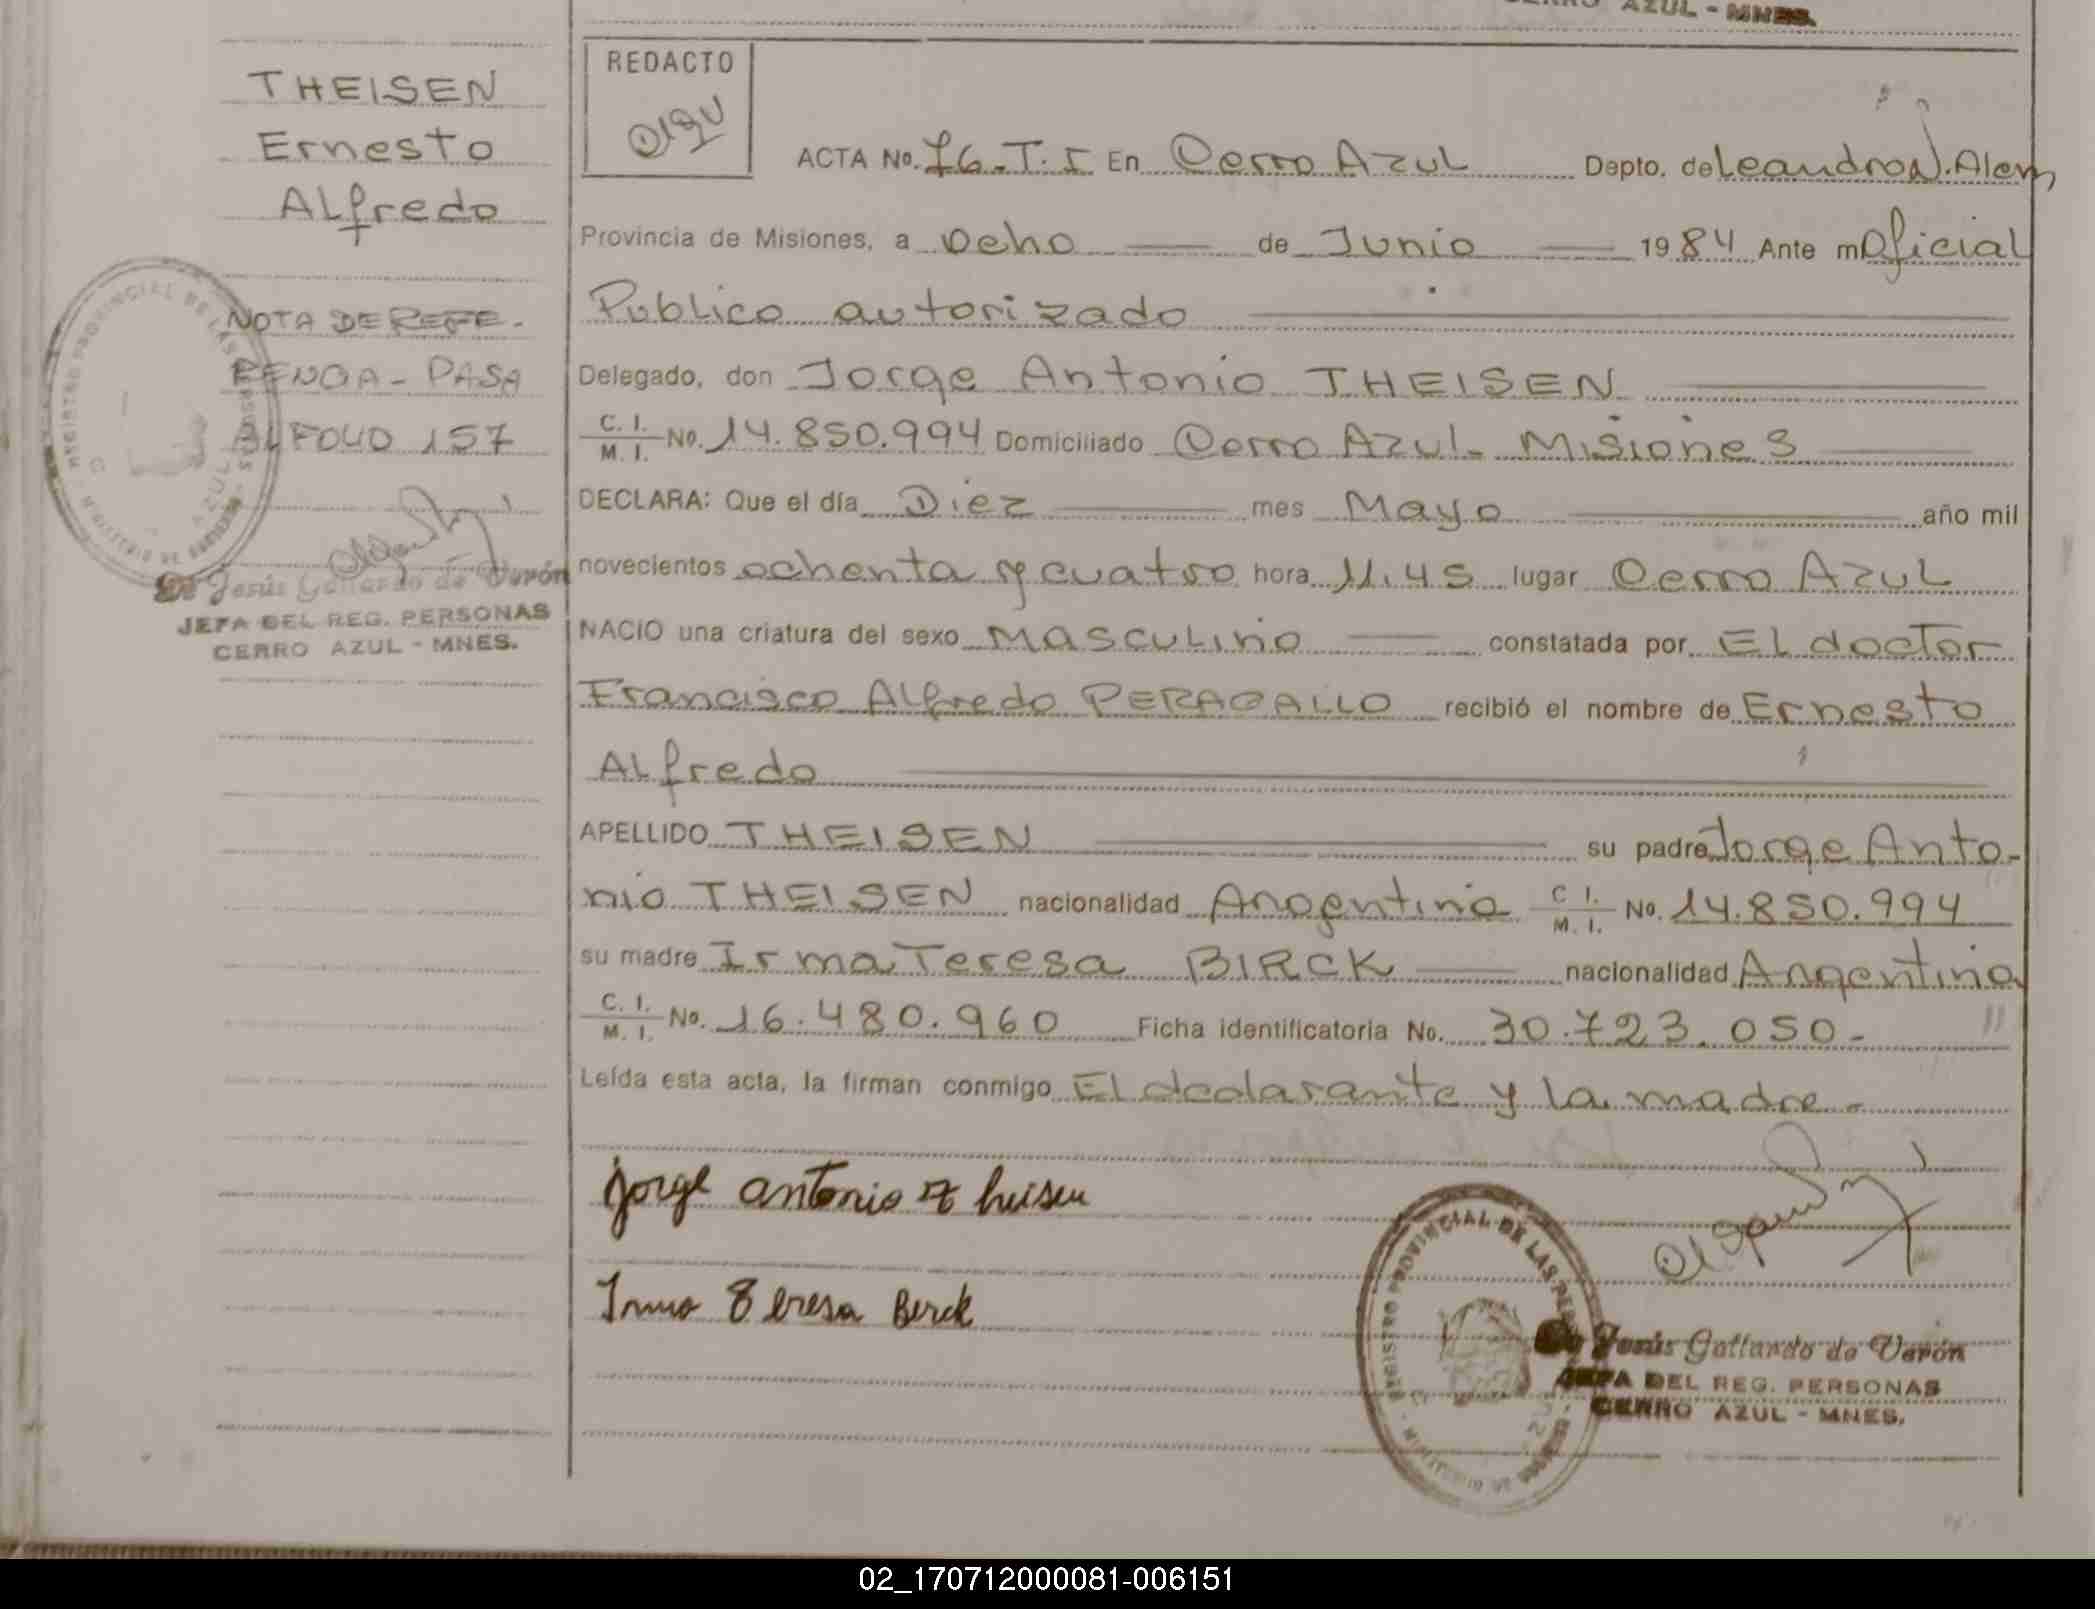 CERRO AZUL - MNES.
THEISEN
Ernesto
ALfredo
NOTA DE REFE-
RENCIA - PASA
AL FOLIO 157
Jesús Gallardo de Verón
JEFA DEL REG. PERSONAS
CERRO AZUL - MNES.
REDACTO
ACTA No. 76-T.I En Cerro AZUL Depto. de Leandro N. Alem
Provincia de Misiones, a ocho de Junio 1984 Ante mí Oficial
Publico autorizado
Delegado, don Jorge Antonio THEISEN
C. I. / M. I. No. 14.850.994 Domiciliado Cerro Azul - Misiones
DECLARA: Que el día Diez mes Mayo año mil
novecientos ochenta y cuatro hora 11.45 lugar Cerro AZUL
NACIO una criatura del sexo masculino constatada por El doctor
Francisco ALfredo PERAGALLO recibió el nombre de Ernesto
ALfredo
APELLIDO THEISEN su padre Jorge Anto-
nio THEISEN nacionalidad Argentina C I. / M. I. No. 14.850.994
su madre Irma Teresa BIRCK nacionalidad Argentina
C. I. / M. I. No. 16.480.960 Ficha identificatoria No. 30.723.050-
Leída esta acta, la firman conmigo El declarante y la madre.-
jorge antonio theisen
Irma Teresa Birck
REGISTRO PROVINCIAL DE LAS PERSONAS
Jesús Gallardo de Verón
JEFA DEL REG. PERSONAS
CERRO AZUL - MNES.
02_170712000081-006151